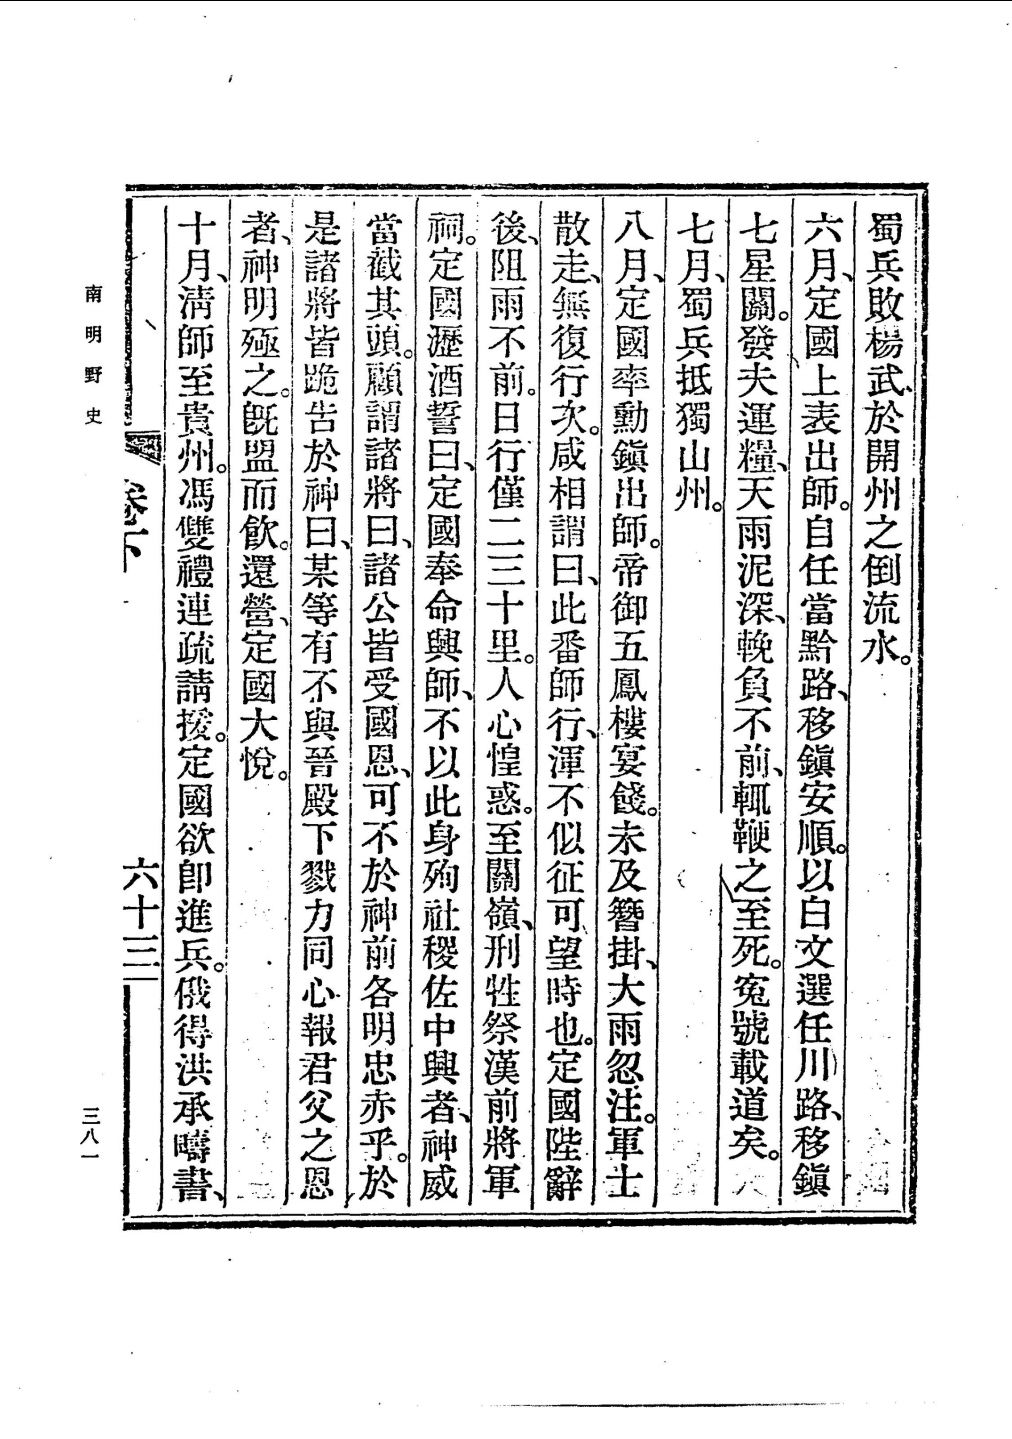 蜀兵敗楊武、於開州之倒流水。
六月、定國上表出師。自任當黔路、移鎮安順。以白文選任川路、移鎮
七星關。發夫運糧、天雨泥深、輓負不前、輒鞭之至死。寃號載道矣。
七月、蜀兵抵獨山州。
八月、定國率勳鎮出師。帝御五鳳樓宴餞。未及簪掛、大雨忽注。軍士
散走、無復行次。咸相謂曰、此番師行、渾不似征可望時也。定國陛辭
後、阻雨不前。日行僅二三十里。人心惶惑。至關嶺、刑牲祭漢前將軍
祠。定國瀝酒誓曰、定國奉命興師、不以此身殉社稷佐中興者、神威
當截其頭。顧謂諸將曰、諸公皆受國恩、可不於神前各明忠赤乎。於
是諸將皆跪告於神曰、某等有不與晉殿下戮力同心報君父之恩
者、神明殛之。既盟而飲。還營、定國大悅。
十月、淸師至貴州。馮雙禮連疏請援。定國欲卽進兵。俄得洪承疇書、
卷下
六十三
南明野史
三八一